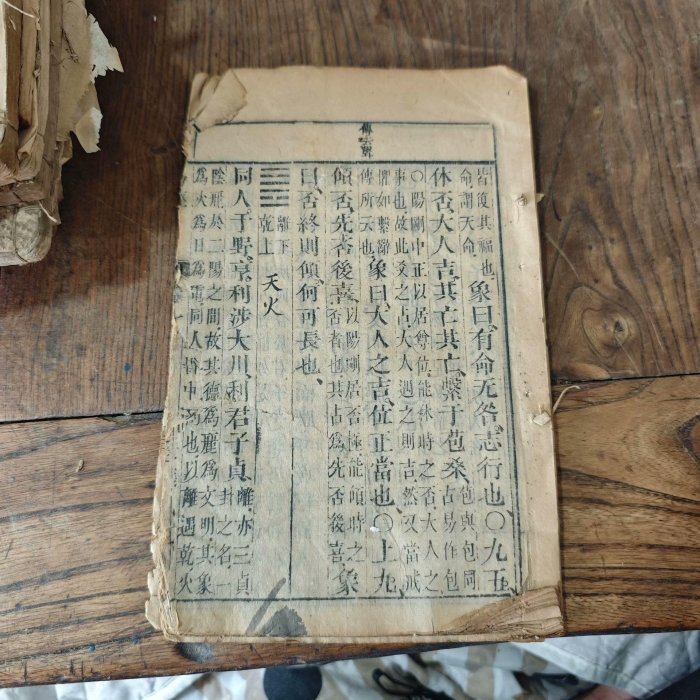 皆獲其福也
命謂天命
象曰有命无咎志行也〇九五
休否大人吉其亡其亡繫于苞桑
苞與包同
古易作包
〇陽剛中正以居尊位能休時之否大人之
事也故此爻之占大人遇之則吉然又當戒
懼如繫辭
傳所云也
象曰大人之吉位正當也〇上九
傾否先否後喜
以陽剛居否極能傾時之
否者也其占為先否後喜
象
曰否終則傾何可長也
䷌
離下
乾上
天火
同人于野亨利涉大川利君子貞
離亦三
卦之名一
陰麗於二陽之間故其德為麗為文明其象
為火為日為電同人也以離遇乾火